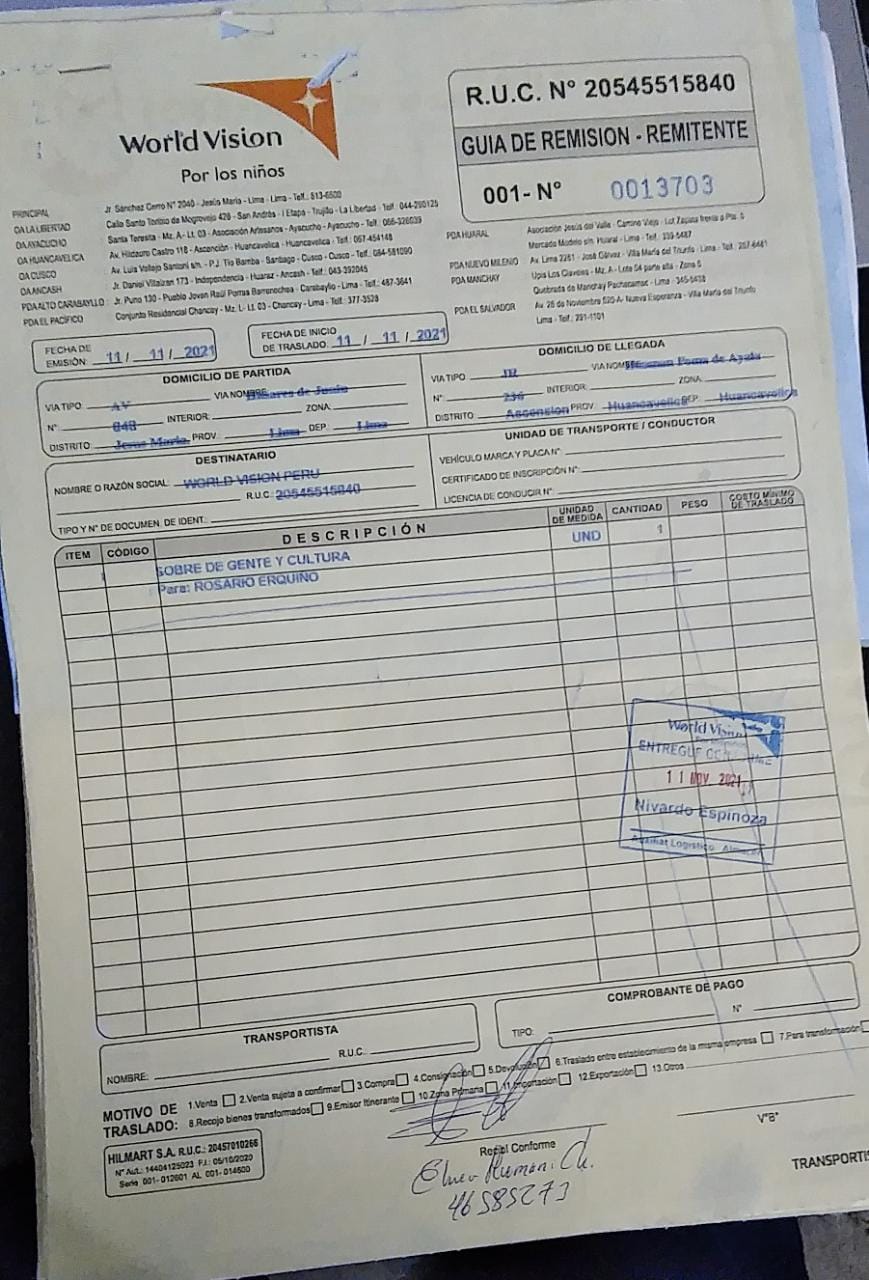 World Vision
Por los niños
R.U.C. N° 20545515840
GUIA DE REMISION - REMITENTE
001- N° 0013703
PRINCIPAL Jr. Sánchez Cerro N° 2040 - Jesús María - Lima - Lima - Telf.: 613-6500
OA LA LIBERTAD Calle Santo Toribio de Mogrovejo 428 - San Andrés - I Etapa - Trujillo - La Libertad - Telf: 044-290125
OA AYACUCHO Santa Teresita - Mz. A - Lt. 03 - Asociación Artesanos - Ayacucho - Ayacucho - Telf: 066-326039
OA HUANCAVELICA Av. Hildauro Castro 118 - Ascención - Huancavelica - Huancavelica - Telf.: 067-454148
OA CUSCO Av. Luis Vallejo Santoni s/n. - P.J. Tío Bamba - Santiago - Cusco - Cusco - Telf.: 084-581090
OA ANCASH Jr. Daniel Villaizan 173 - Independencia - Huaraz - Ancash - Telf.: 043-392045
PDA ALTO CARABAYLLO : Jr. Puno 130 - Pueblo Joven Raúl Porras Barrenechea - Carabayllo - Lima - Telf.: 487-3641
PDA EL PACÍFICO Conjunto Residencial Chancay - Mz. L - Lt. 03 - Chancay - Lima - Telf.: 377-3528
PDA HUARAL Asociación Jesús del Valle - Camino Viejo - Lot Zapata frente a Pta. 5
Mercado Modelo s/n. Huaral - Lima - Telf.: 339-5487
PDA NUEVO MILENIO Av. Lima 2261 - José Gálvez - Villa María del Triunfo - Lima - Telf: 257-6461
PDA MANCHAY Upis Los Claveles - Mz. A - Lote 54 parte alta - Zona 5
Quebrada de Manchay Pachacamac - Lima - 345-5438
PDA EL SALVADOR Av. 26 de Noviembre 520-A- Nueva Esperanza - Villa María del Triunfo
Lima - Telf.: 291-1101
FECHA DE EMISIÓN: 11 / 11 / 2021
FECHA DE INICIO DE TRASLADO: 11 / 11 / 2021
DOMICILIO DE PARTIDA
VIA TIPO AV VIA NOMBRE de Junio
N° 848 INTERIOR: ZONA:
DISTRITO: Jesus Maria PROV.: Lima DEP.: Lima
DOMICILIO DE LLEGADA
VIA TIPO JR VIA NOMBRE Poma de Ayala
N°: 236 INTERIOR: ZONA:
DISTRITO Ascension PROV.: Huancavelica DEP.: Huancavelica
DESTINATARIO
NOMBRE O RAZÓN SOCIAL: WORLD VISION PERU
R.U.C 20545515840
TIPO Y N° DE DOCUMEN. DE IDENT.:
UNIDAD DE TRANSPORTE / CONDUCTOR
VEHÍCULO MARCA Y PLACA N°:
CERTIFICADO DE INSCRIPCIÓN N°:
LICENCIA DE CONDUCIR N°:
ITEM CÓDIGO DESCRIPCIÓN UNIDAD DE MEDIDA CANTIDAD PESO COSTO MÍNIMO DE TRASLADO
1 SOBRE DE GENTE Y CULTURA UND 1
Para: ROSARIO ERQUINO
World Vision
ENTREGUE
11 NOV. 2021
Nivardo Espinoza
Auxiliar Logístico - Almacén
TRANSPORTISTA
NOMBRE: R.U.C.:
COMPROBANTE DE PAGO
TIPO: N°
MOTIVO DE TRASLADO: 1.Venta 2.Venta sujeta a confirmar 3.Compra 4.Consignación 5.Devolución 6.Traslado entre establecimiento de la misma empresa 7.Para transformación
8.Recojo bienes transformados 9.Emisor Itinerante 10.Zona Primaria 11.Importación 12.Exportación 13.Otros
HILMART S.A. R.U.C.: 20457010266
N° Aut.: 14404125023 F.I.: 05/10/2020
Serie 001- 012601 AL 001- 014600
Recibí Conforme
46585273
V°B°
TRANSPORTIS